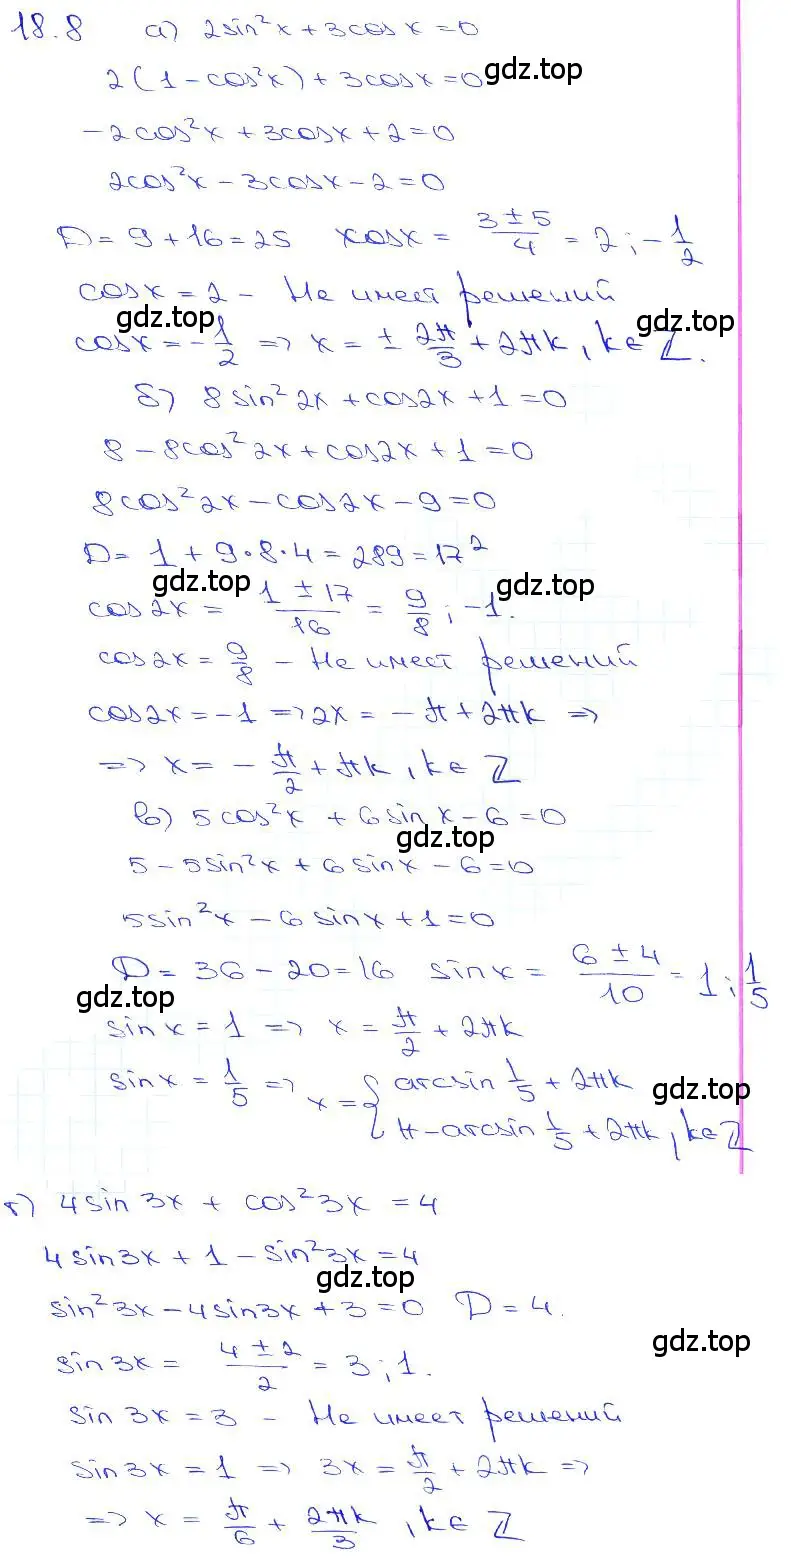 18.8 а) 2sin²x + 3cosx = 0
2(1 - cos²x) + 3cosx = 0 gdz.top
-2cos²x + 3cosx + 2 = 0
2cos²x - 3cosx - 2 = 0
D = 9 + 16 = 25 cosx = (3 ± 5)/4 = 2 ; -1/2
cosx = 2 - Не имеет решений
gdz.top
gdz.top
cosx = -1/2 => x = ± 2π/3 + 2πk, k ∈ Z.
б) 8sin²2x + cos2x + 1 = 0
8 - 8cos²2x + cos2x + 1 = 0
8cos²2x - cos2x - 9 = 0
D = 1 + 9·8·4 = 289 = 17²
gdz.top
gdz.top
cos2x = (1 ± 17)/16 = 9/8 ; -1.
cos2x = 9/8 - Не имеет решений
cos2x = -1 => 2x = -π + 2πk =>
=> x = -π/2 + πk, k ∈ Z
в) 5cos²x + 6sinx - 6 = 0
gdz.top
5 - 5sin²x + 6sinx - 6 = 0
5sin²x - 6sinx + 1 = 0
D = 36 - 20 = 16 sinx = (6 ± 4)/10 = 1 ; 1/5
gdz.top
sinx = 1 => x = π/2 + 2πk
sinx = 1/5 => x = { arcsin 1/5 + 2πk
gdz.top
π - arcsin 1/5 + 2πk, k ∈ Z
г) 4sin3x + cos²3x = 4
4sin3x + 1 - sin²3x = 4
gdz.top
sin²3x - 4sin3x + 3 = 0 D = 4.
gdz.top
sin3x = (4 ± 2)/2 = 3 ; 1.
sin3x = 3 - Не имеет решений
sin3x = 1 => 3x = π/2 + 2πk =>
=> x = π/6 + 2πk/3, k ∈ Z